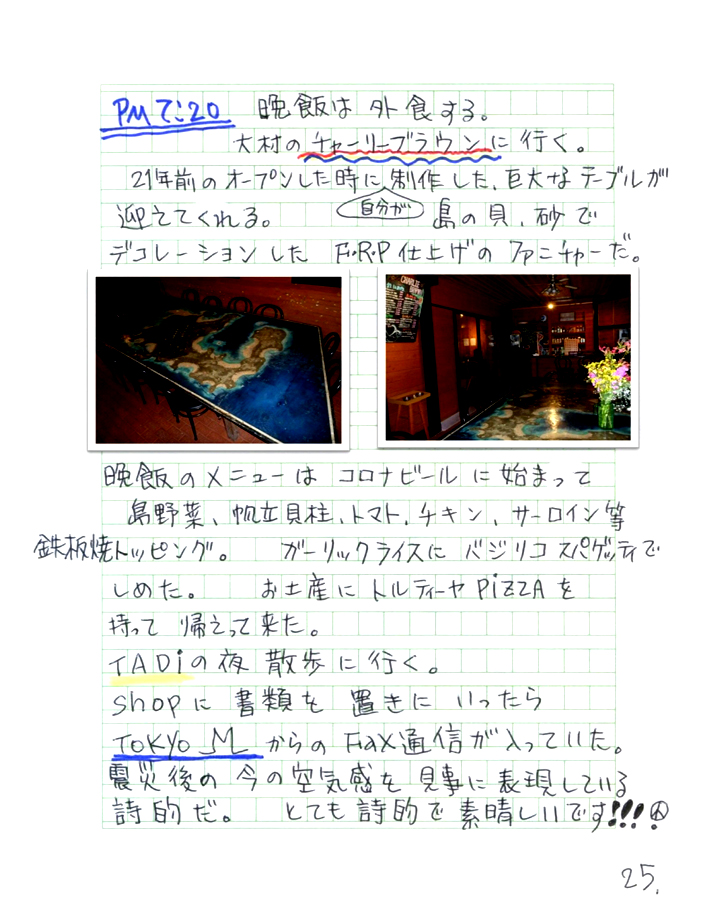 PM 7:20 晩飯は外食する。
大村のチャーリーブラウンに行く。
21年前のオープンした時に制作した、巨大なテーブルが
自分が
迎えてくれる。 島の貝、砂で
デコレーションした F・R・P仕上げのファニチャーだ。
晩飯のメニューはコロナビールに始まって
島野菜、帆立貝柱、トマト、チキン、サーロイン等
鉄板焼トッピング。 ガーリックライスにバジリコスパゲッティで
しめた。 お土産にトルティーヤPiZZAを
持って帰えって来た。
TADiの夜散歩に行く。
Shopに書類を置きにいったら
TOKYO Mからの Fax通信が入っていた。
震災後の今の空気感を見事に表現している
詩的だ。 とても詩的で素晴しいです!!!
25.